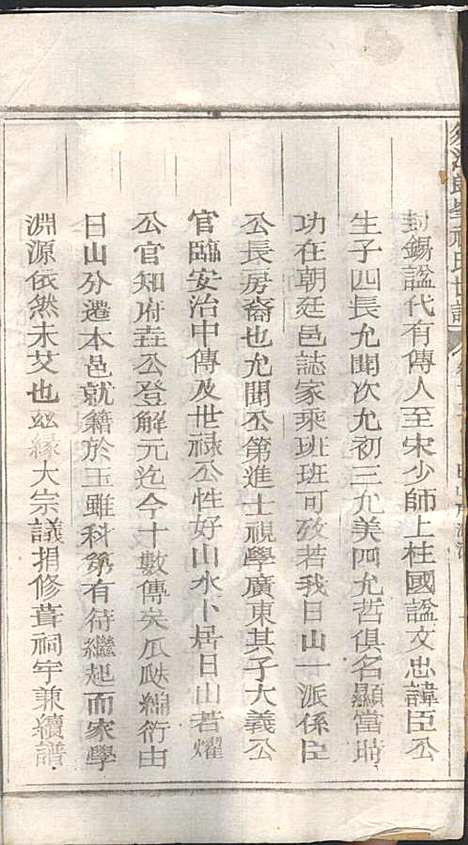 封錫諡代有傳人至宋少師上柱國諡文忠諱臣公
生子四長允聞次允初三允美四允哲俱名顯當時
功在朝廷邑誌家乘班班可攷若我日山一派係臣
公長房裔也允聞公第進士視學廣東其子大義公
官臨安治中傳及世祿公性好山水卜居日山若燿
公官知府垚公登解元迄今十數傳矣瓜瓞綿衍由
日山分遷本邑就籍於玉雖科第有待繼起而家學
淵源依然未艾也玆緣大宗議捐修葺祠宇兼續譜